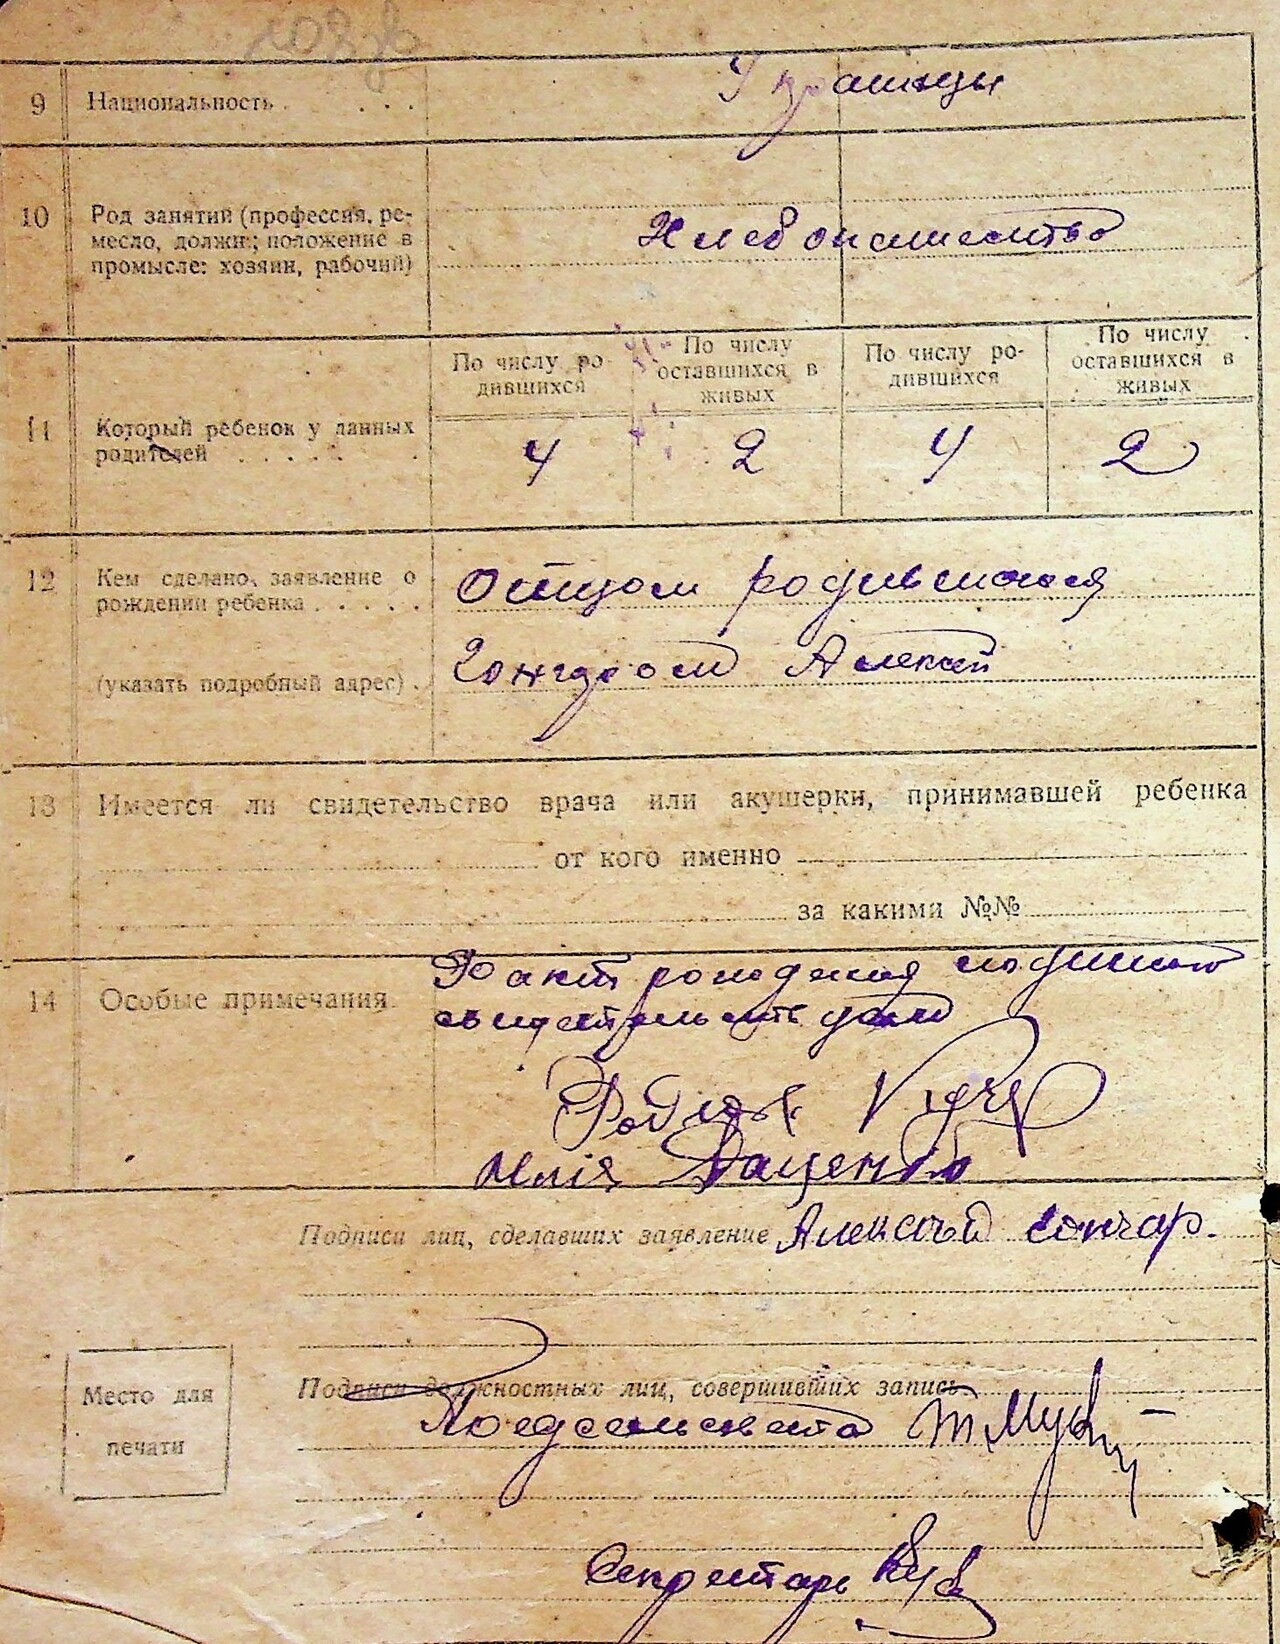 9 Национальность . . . . Украинцы
10 Род занятий (профессия, ре-
месло, должн.; положение в
промысле: хозяин, рабочий)
Хлебопашество
По числу ро-
дившихся
По числу
оставшихся в
живых
По числу ро-
дившихся
По числу
оставшихся в
живых
11 Который ребенок у данных
родителей . . . . . .
4 2 4 2
12 Кем сделано заявление о
рождении ребенка . . . . .
Отцом родившегося
(указать подробный адрес) .
Гончаром Алексей
13 Имеется ли свидетельство врача или акушерки, принимавшей ребенка
от кого именно
за какими №№
14 Особые примечания
Факт рождения
свидетельствуем
Илія Даценко
Подписи лиц, сделавших заявление Алексей Гончар.
Место для
печати
Подписи должностных лиц, совершивших запись
Предсельсовета
Секретарь